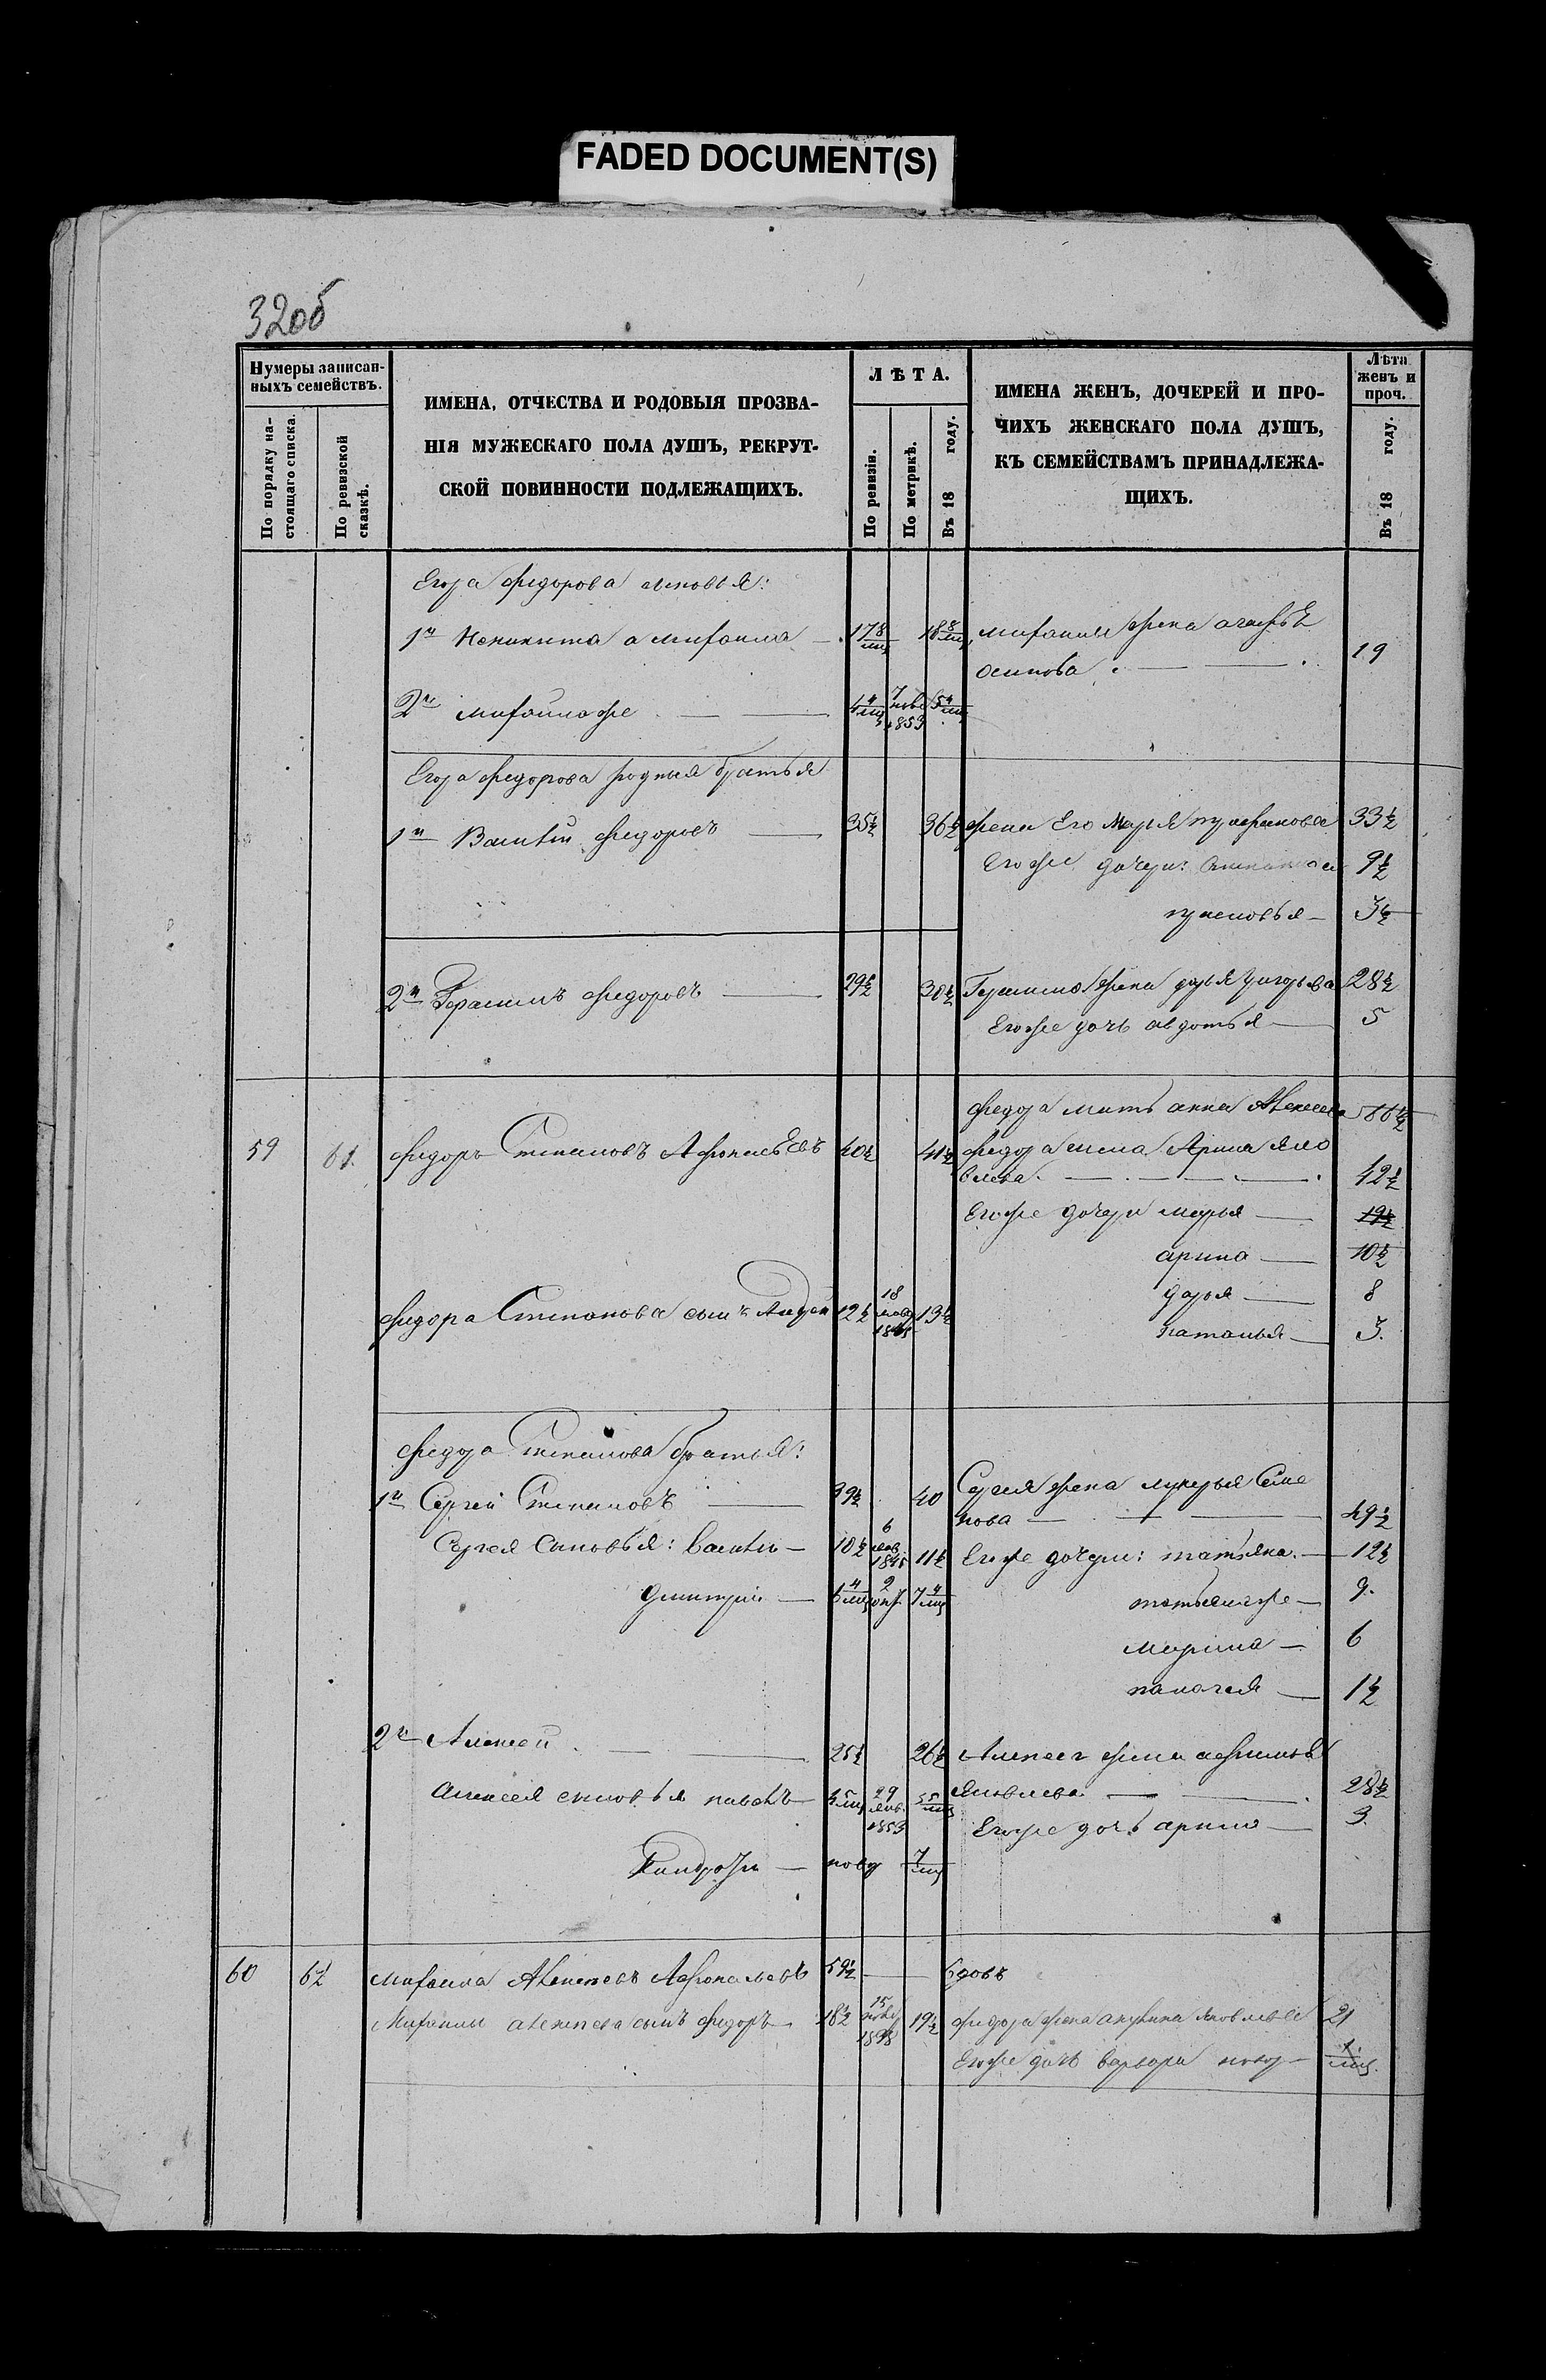 FADED DOCUMENT(S)
32об
Нумеры записан-
ныхъ семействъ.
По порядку на-
стоящаго списка.
По ревизской
сказкѣ.
ИМЕНА, ОТЧЕСТВА И РОДОВЫЯ ПРОЗВА-
НІЯ МУЖЕСКАГО ПОЛА ДУШЪ, РЕКРУТ-
СКОЙ ПОВИННОСТИ ПОДЛЕЖАЩИХЪ.
ЛѢТА.
По ревизіи.
По метрикѣ.
Въ 18 году.
ИМЕНА ЖЕНЪ, ДОЧЕРЕЙ И ПРО-
ЧИХЪ ЖЕНСКАГО ПОЛА ДУШЪ,
КЪ СЕМЕЙСТВАМЪ ПРИНАДЛЕЖА-
ЩИХЪ.
Лѣта
женъ и
проч.
Въ 18 году.
Егора федорова сыновья:
1й а михаила 17 8/мц 18 8/мц михаила жена
осипова 19
2й михайла же 4 4/мц 7 нояб 1853 5 4/мц
Егора федорова родныя братья
1й Василій федоровъ 35½ 36½ жена Его Марья 33½
Егоже дочери: 9½
3½
2й Герасимъ федоровъ 29½ 30½ Герасима жена дарья григорьева 28½
Егоже дочь авдотья 5
федора мать анна Алексеева
59 61. федоръ Степановъ Афонасьевъ 40½ 41½ федора жена Арина яко
влева 42½
Егоже дочери марья 19½
арина 10½
дарья 8
федора Степанова сынъ Андрей 12½ 18 13½ наталья 3.
федора Степанова братья:
1й Сергей Степановъ 39½ 40 Сергея жена лукерья Семе
нова 49½
Сергея Сыновья: Василій 10½ 6 янв 1845 11½ Егоже дочери: татьяна 12½
дмитрий 6 4/мц 2 окт. 7 4/мц татьяна же 9.
марина 6
палагея 1½
2й Алексей 25½ 26½ Алексея жена
Яковлева 28½
Алексея сыновья павелъ 4 5/мц 29 янв. 1853 5 5/мц
Егоже дочь арина 3
Кандратий новор 7/мц
60 62 михаила Алексеевъ Афонасьевъ 59½ вдовъ
Михаила алексеева сынъ федоръ 18½ 15 19½ федора жена акулина яковлева 21
Егоже дочь варвара новор 1/мц.